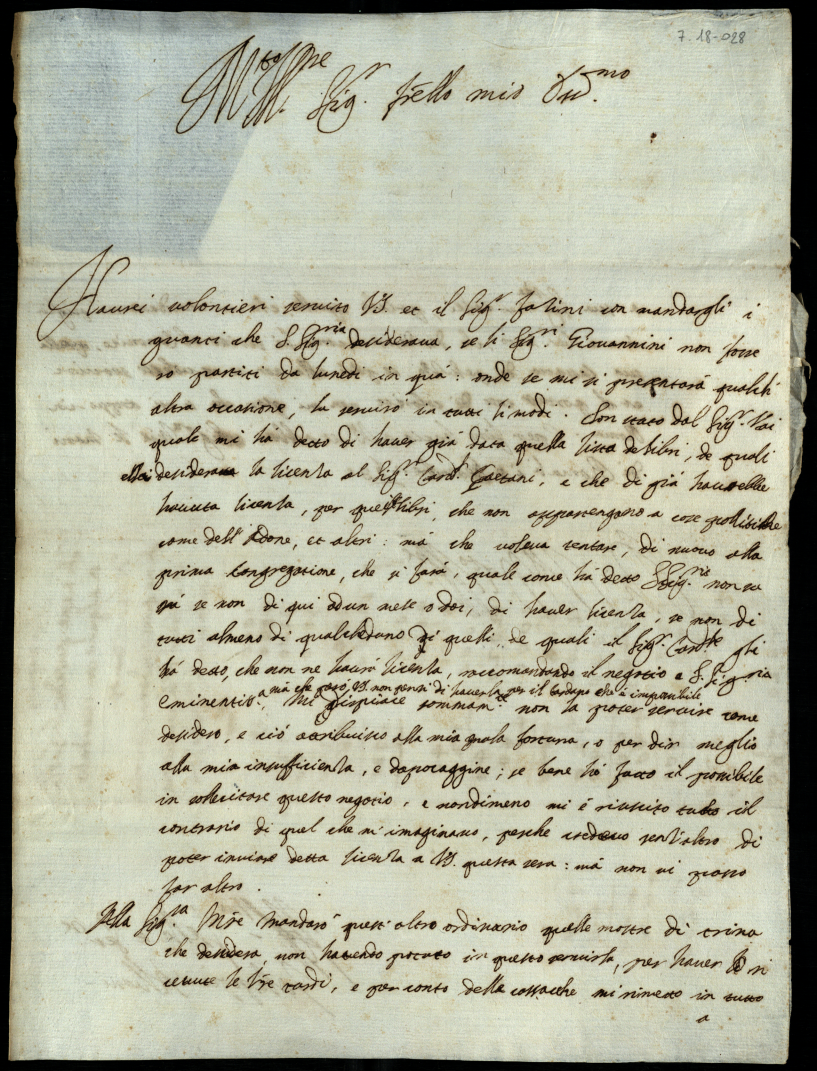 7.18-028
M.to Ill.re Sig.r frello mio oss.mo
Haurei volontieri seruito VS. et il Sig.r Fatini con mandargli i
guanti che S. Sig.ria desideraua, se li Sig.ri Giouannini non fosse
ro partiti da lunedi in quà: onde se mi si presentarà qualche
altra occasione, la seruirò in tutti li modi. Son stato dal Sig.r Vai
quale mi hà detto di hauer già data quella lista de libri, de quali
desideraua la licenza al Sig.r Card.l Gaetani, e che di già haurebbe
hauuta licenza, per quelli libri, che non appartengono a cose prohibite
come dell' Adone, et altri: mà che uoleua tentare, di nuouo alla
prima Congregatione, che si farà, quale come hà detto S. Sig.ria non sa
rà se non di qui ad un mese o doi, di hauer licenza, se non di
tutti almeno di qualcheduno di quelli de quali il Sig.r Card.le gli
hà detto, che non ne haurà licenza, raccomandando il negotio a S. Sig.ria
a mà che però VS. non pensi di hauerla per il Cardano che è impossibile
eminentiss.a, Mi dispiace sommam.te non la poter seruire come
desidero, e ciò attribuisco alla mia mala fortuna, o per dir meglio
alla mia insufficienza, e dapocaggine; se bene hò fatto il possibile
in sollecitare questo negotio, e nondimeno mi è riuscito tutto il
contrario di quel che m' imaginauo, perche credeuo senz'altro di
poter inuiare detta licenza a VS. questa sera: mà non ui posso
far altro.
Alla Sig.ra M̃re mandarò quest' altro ordinario quelle mostre di trina
che desidera, non hauendo potuto in questo seruirla, per hauer le ri
ceuute le lr̃e tardi, e per conto delle mi rimetto in tutto
a